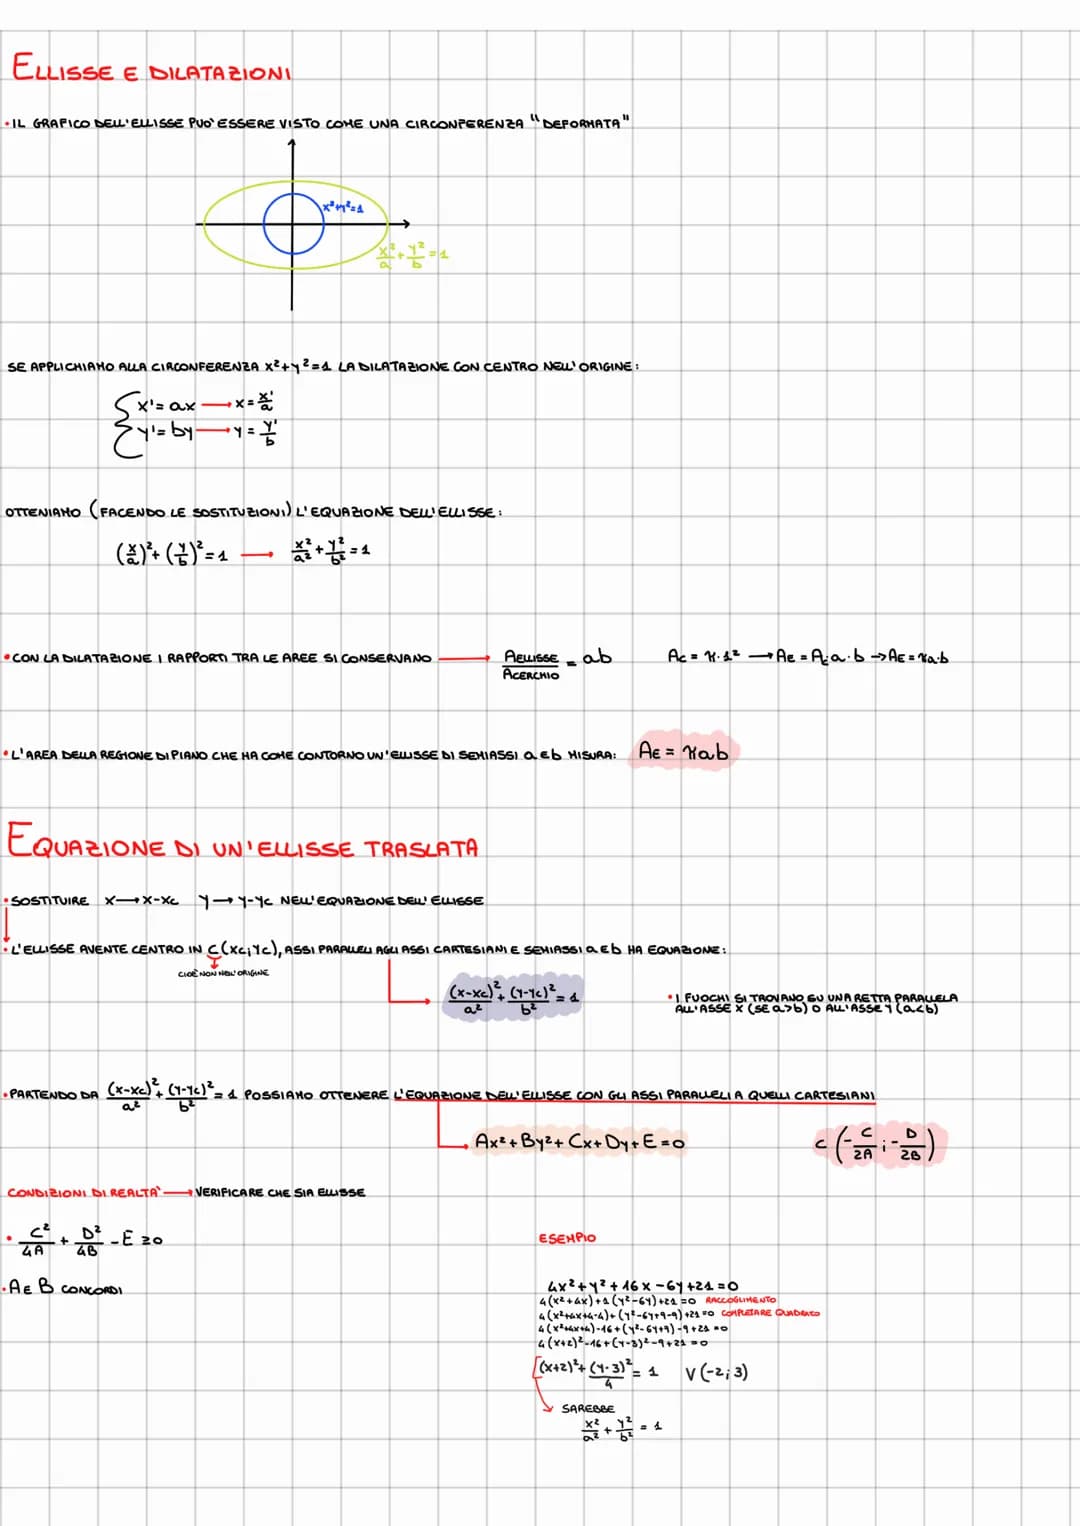 ELLISSE E DILATAZIONI
• IL GRAFICO DELL'ELLISSE PUO' ESSERE VISTO COME UNA CIRCONFERENZA "DEFORMATA"
x²+y²=1
x²/a + y²/b = 1
SE APPLICHIAMO ALLA CIRCONFERENZA x²+y²=1 LA DILATAZIONE CON CENTRO NELL'ORIGINE:
{ x'=ax → x = x'/a
y'=by → y = y'/b
OTTENIAMO (FACENDO LE SOSTITUZIONI) L'EQUAZIONE DELL'ELLISSE:
(x/a)² + (y/b)² = 1 → x²/a² + y²/b² = 1
• CON LA DILATAZIONE I RAPPORTI TRA LE AREE SI CONSERVANO → AELLISSE/ACERCHIO = ab Ac = π·1² → Ae = Ac·a·b → AE = πa·b
• L'AREA DELLA REGIONE DI PIANO CHE HA COME CONTORNO UN'ELLISSE DI SEMIASSI a E b MISURA: AE = πab
EQUAZIONE DI UN'ELLISSE TRASLATA
• SOSTITUIRE x → x-xc y → y-yc NELL'EQUAZIONE DELL'ELLISSE
• L'ELLISSE AVENTE CENTRO IN C(xc;yc), ASSI PARALLELI AGLI ASSI CARTESIANI E SEMIASSI a E b HA EQUAZIONE:
CIOÈ NON NELL'ORIGINE
(x-xc)²/a² + (y-yc)²/b² = 1
• I FUOCHI SI TROVANO SU UNA RETTA PARALLELA
ALL'ASSE X (SE a>b) O ALL'ASSE Y (a<b)
• PARTENDO DA (x-xc)²/a² + (y-yc)²/b² = 1 POSSIAMO OTTENERE L'EQUAZIONE DELL'ELLISSE CON GLI ASSI PARALLELI A QUELLI CARTESIANI
Ax²+By²+Cx+Dy+E=0 C (-C/2A ; -D/2B)
CONDIZIONI DI REALTA' → VERIFICARE CHE SIA ELLISSE
• C²/4A + D²/4B - E ≥ 0
• A E B CONCORDI
ESEMPIO
4x²+y²+16x-6y+21=0
4(x²+4x)+1(y²-6y)+21=0 RACCOGLIMENTO
4(x²+4x+4-4)+(y²-6y+9-9)+21=0 COMPLETARE QUADRATO
4(x²+4x+4)-16+(y²-6y+9)-9+21=0
4(x+2)²-16+(y-3)²-9+21=0
(x+2)² + (y-3)²/4 = 1 V(-2;3)
SAREBBE
x²/a² + y²/b² = 1